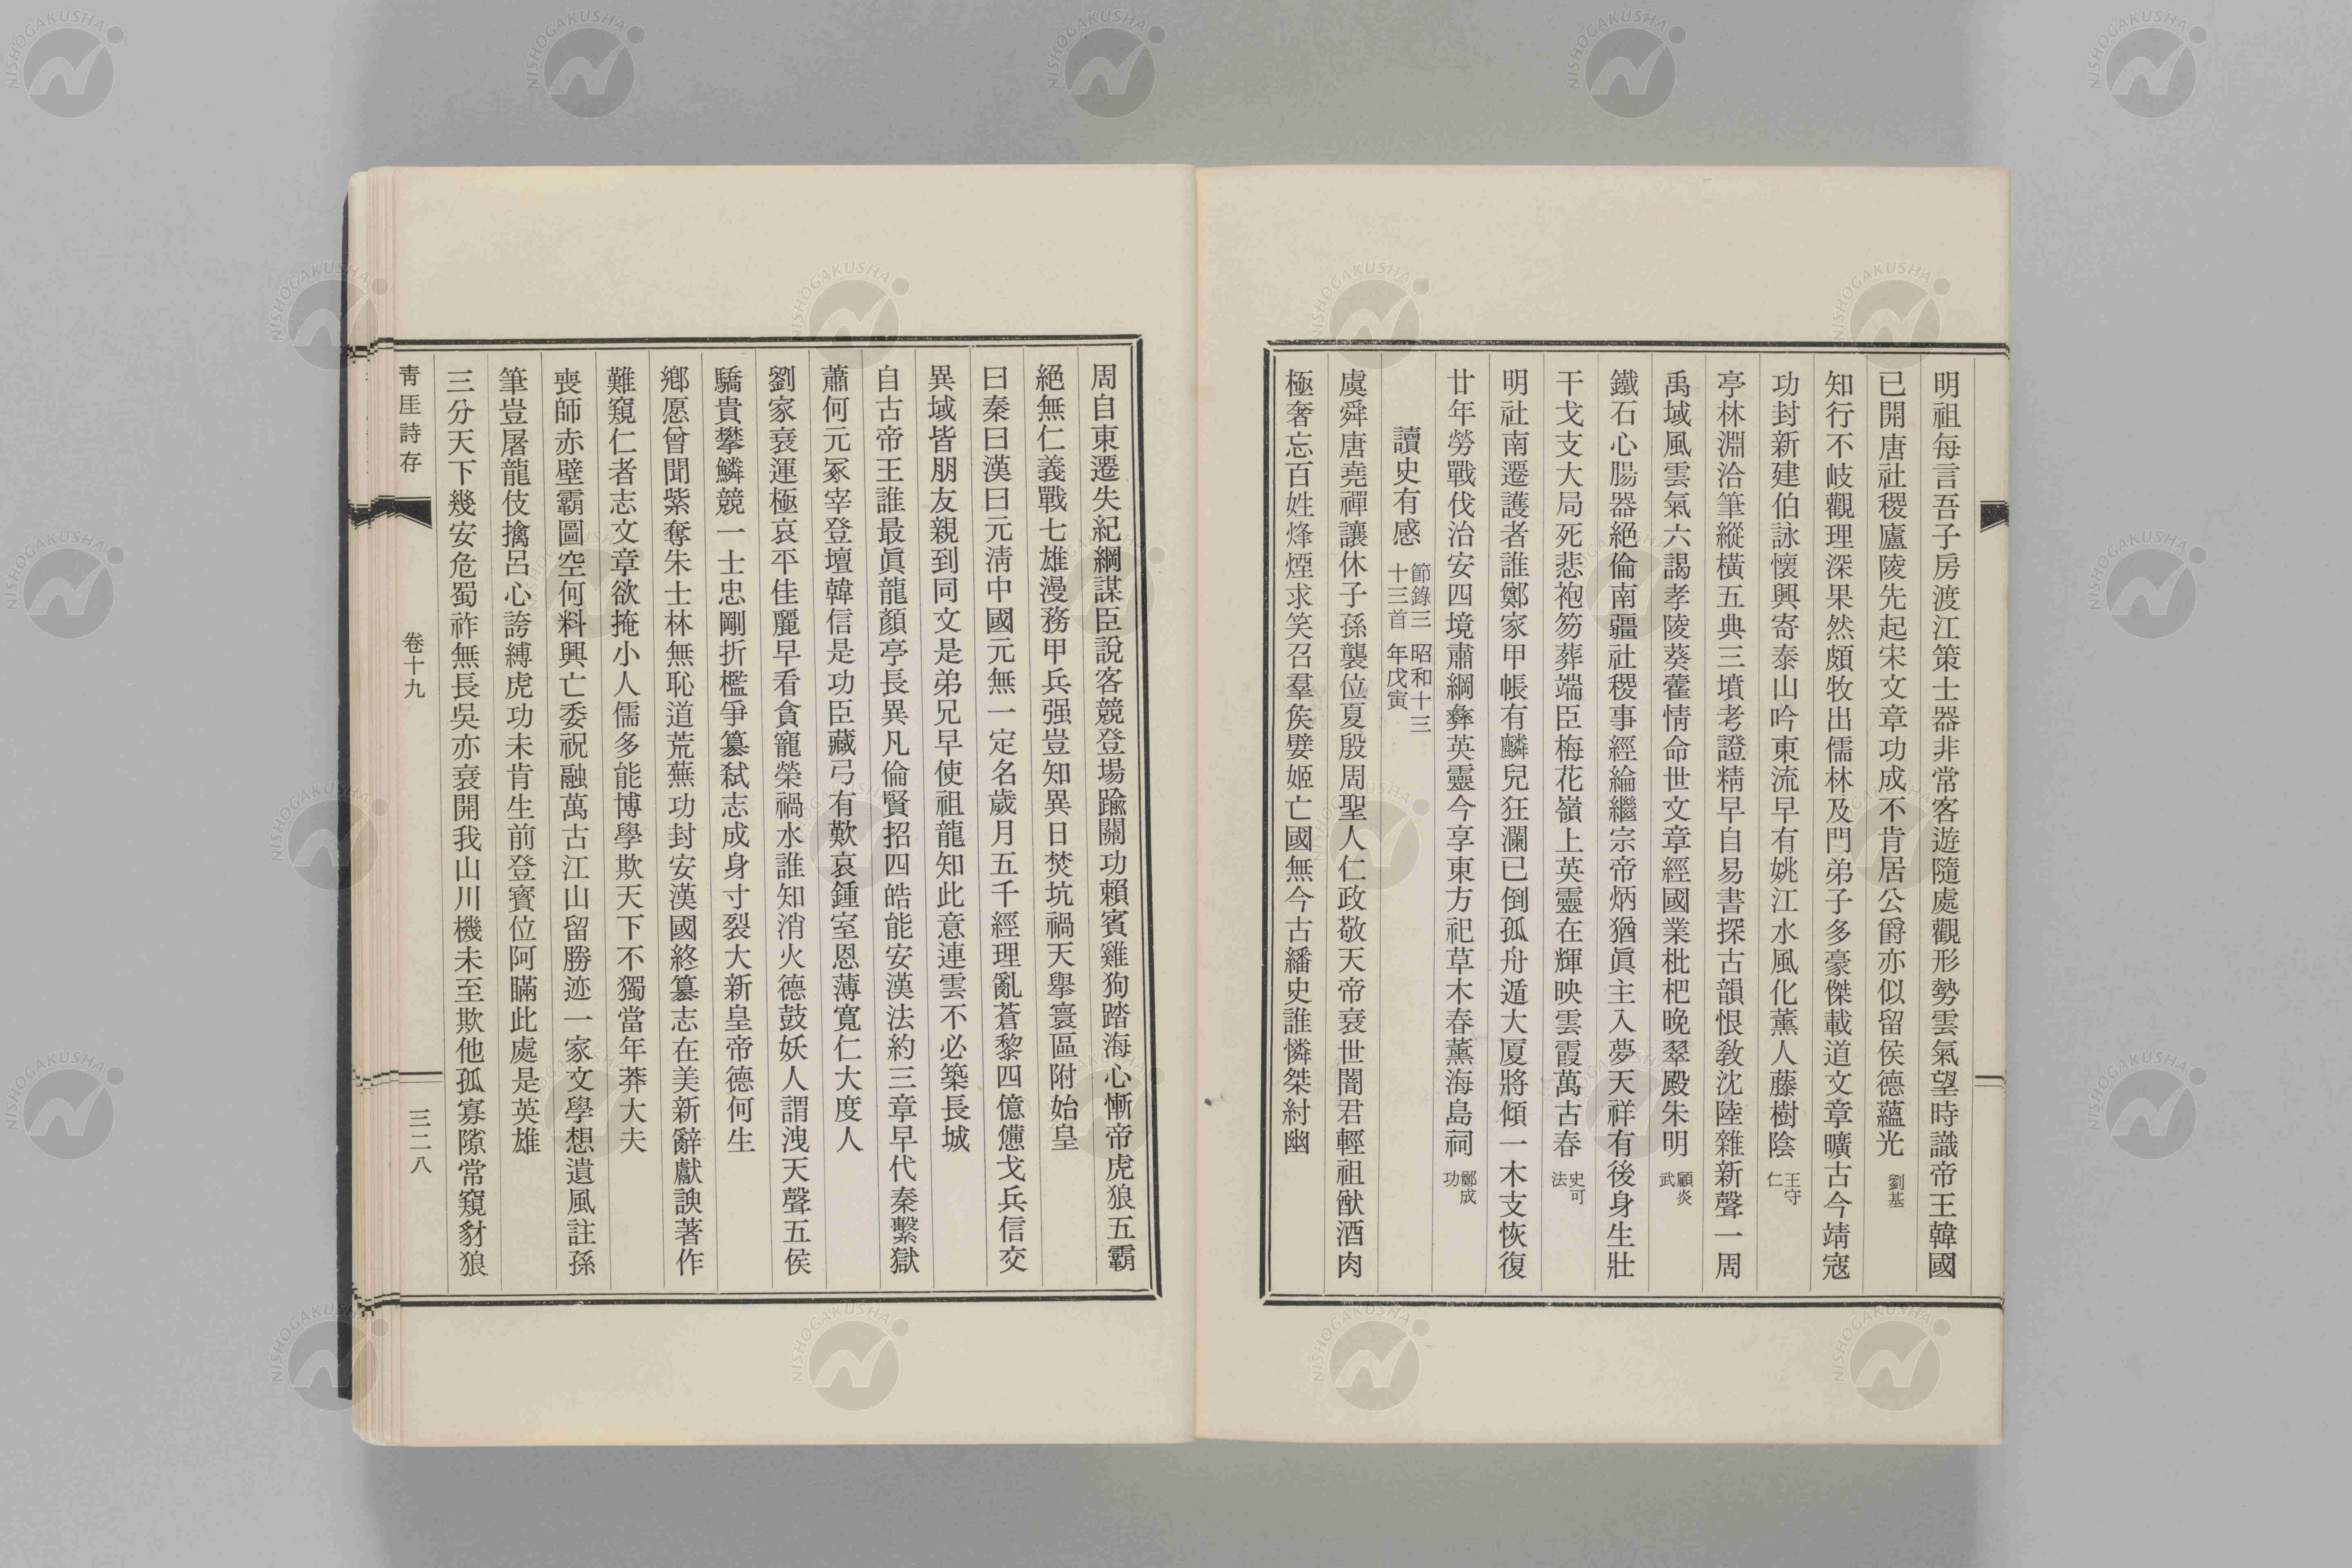 明祖每言吾子房渡江策士器非常客遊隨處觀形勢雲氣望時識帝王韓國
已開唐社稷廬陵先起宋文章功成不肯居公爵亦似留侯德蘊光 劉基
知行不岐觀理深果然頗牧出儒林及門弟子多豪傑載道文章曠古今靖寇
功封新建伯詠懷興寄泰山吟東流早有姚江水風化薰人藤樹陰 王守仁
亭林淵洽筆縱橫五典三墳考證精早自易書探古韻恨敎沈陸雜新聲一周
禹域風雲氣六謁孝陵葵藿情命世文章經國業枇杷晚翠殿朱明 顧炎武
鐵石心腸器絕倫南疆社稷事經綸繼宗帝炳猶眞主入夢天祥有後身生壯
干戈支大局死悲袍笏葬端臣梅花嶺上英靈在輝映雲霞萬古春 史可法
明社南遷護者誰鄭家甲帳有麟兒狂瀾已倒孤舟遁大厦將傾一木支恢復
廿年勞戰伐治安四境肅綱彝英靈今享東方祀草木春薰海島祠 鄭成功
讀史有感 節錄三十三首 昭和十三年戊寅
虞舜唐堯禪讓休子孫襲位夏殷周聖人仁政敬天帝衰世闇君輕祖猷酒肉
極奢忘百姓烽煙求笑召羣矦嬖姬亡國無今古繙史誰憐桀紂幽
周自東遷失紀綱謀臣說客競登場踰關功賴賓雞狗踏海心慚帝虎狼五霸
絕無仁義戰七雄漫務甲兵强豈知異日焚坑禍天擧寰區附始皇
曰秦曰漢曰元淸中國元無一定名歲月五千經理亂蒼黎四億憊戈兵信交
異域皆朋友親到同文是弟兄早使祖龍知此意連雲不必築長城
自古帝王誰最眞龍顏亭長異凡倫賢招四皓能安漢法約三章早代秦繫獄
蕭何元冢宰登壇韓信是功臣藏弓有歎哀鍾室恩薄寬仁大度人
劉家衰運極哀平佳麗早看貪寵榮禍水誰知消火德鼓妖人謂洩天聲五侯
驕貴攀鱗競一士忠剛折檻爭簒弑志成身寸裂大新皇帝德何生
鄕愿曾聞紫奪朱士林無恥道荒蕪功封安漢國終簒志在美新辭獻諛著作
難窺仁者志文章欲掩小人儒多能博學欺天下不獨當年莽大夫
喪師赤壁霸圖空何料興亡委祝融萬古江山留勝迹一家文學想遺風註孫
筆豈屠龍伎擒呂心誇縛虎功未肯生前登寶位阿瞞此處是英雄
三分天下幾安危蜀祚無長吳亦衰開我山川機未至欺他孤寡隙常窺豺狼
青厓詩存
卷十九
三二八